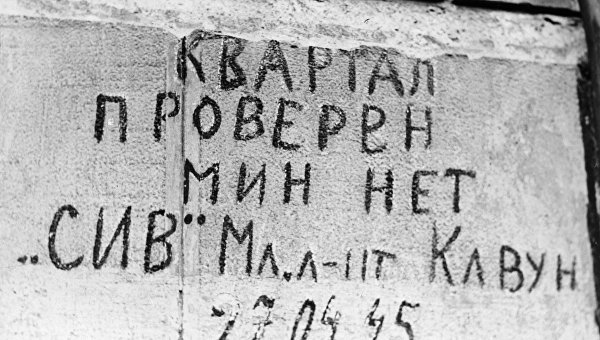 КВАРТАЛ
ПРОВЕРЕН
МИН НЕТ
„СИВ" Мл. л-нт Клвун
27.04.45